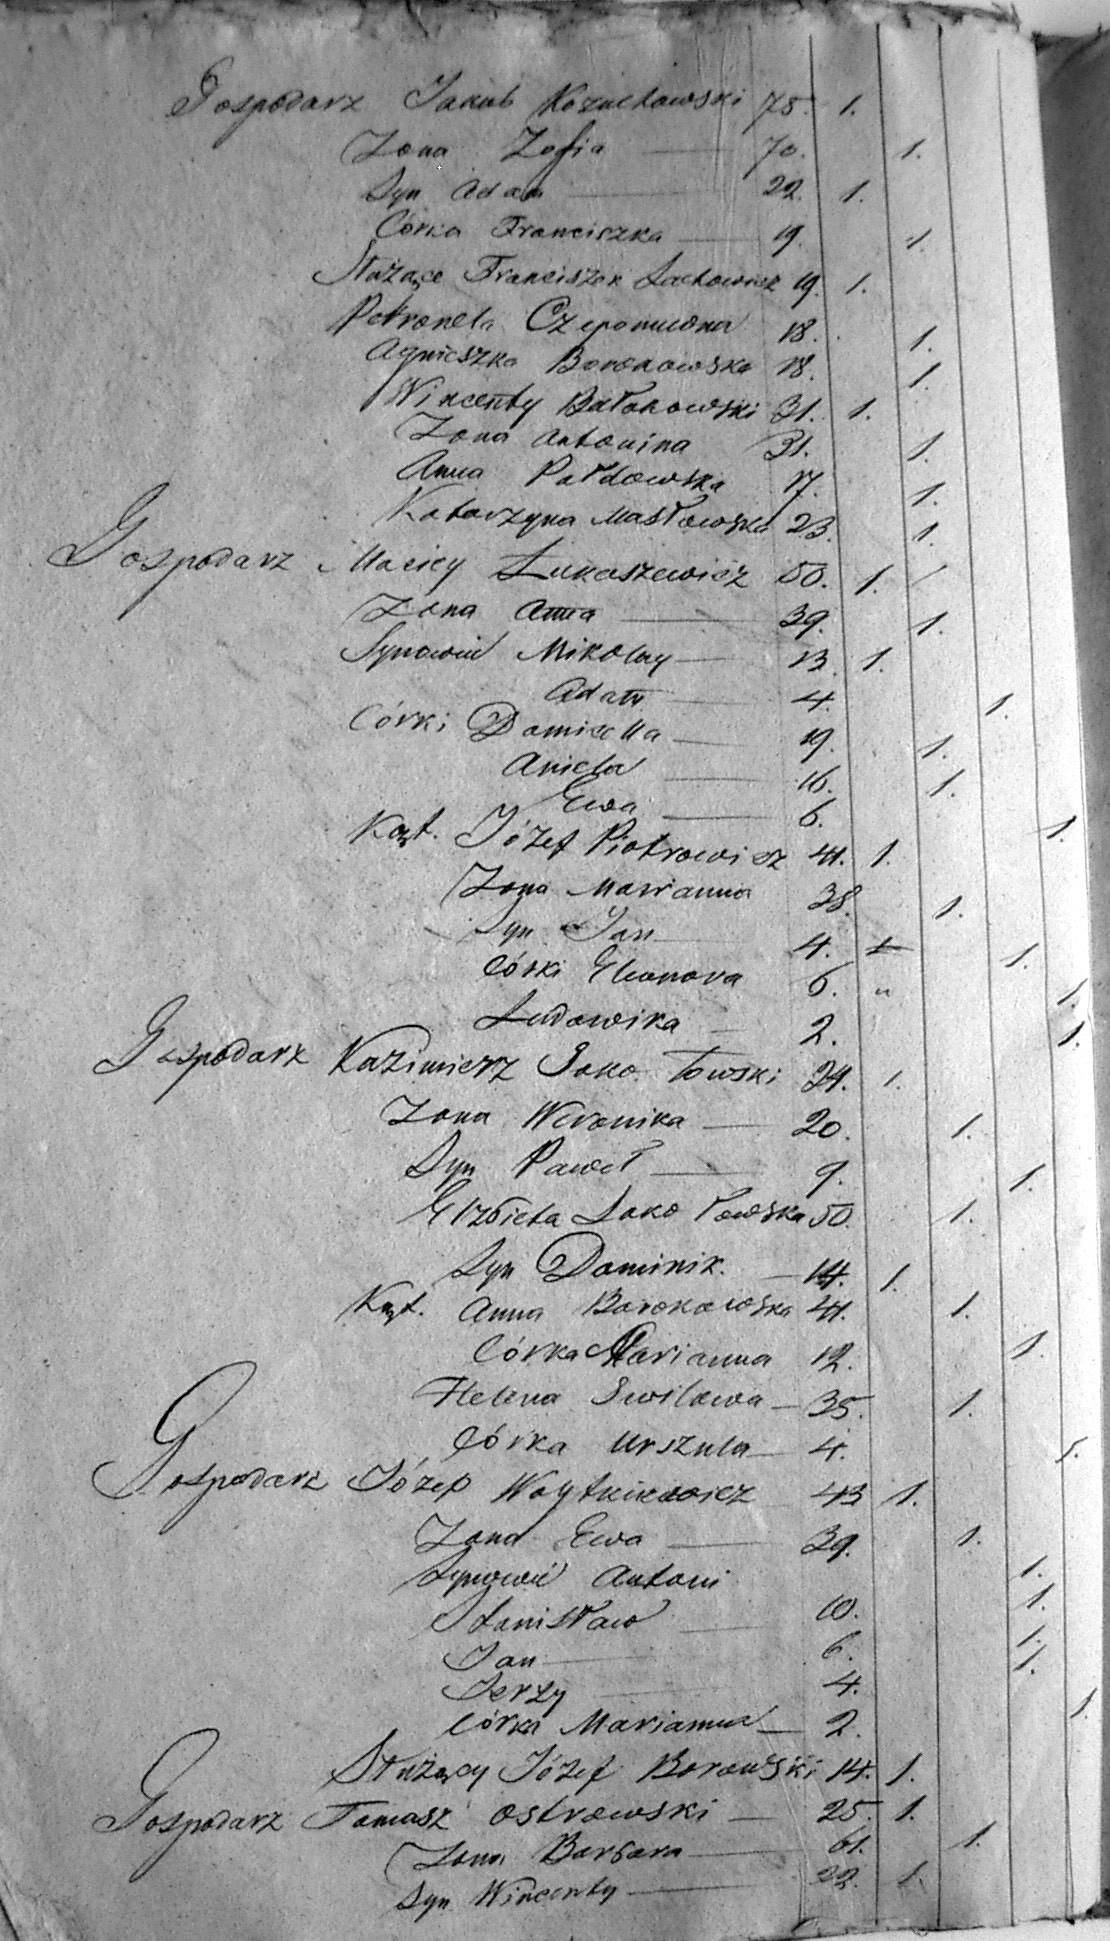 Gospodarz Jakub Kozuchowski 75. 1.
Zona Zofia 70. 1.
Syn Adam 22. 1.
Córka Franciszka 19. 1.
Służące Franciszek Lachowicz 19. 1.
Petronela 18. 1.
Agnieszka Boronowska 18. 1.
Wincenty Bałakowski 31. 1.
Zona Antonina 31. 1.
Anna Pałdowska 17. 1.
Katarzyna Masłowska 23. 1.
Gospodarz Maciey Łukaszewicz 50. 1.
Zona Anna 39. 1.
Synowie Mikołay 13. 1.
Adam 4. 1.
Córki Domicella 19. 1.
Aniela 16. 1.
Ewa 6. 1.
Kąt. Józef Piotrowicz 41. 1.
Zona Marianna 38. 1.
Syn Jan 4. 1.
Córki Eleonora 6. 1.
Ludowika 2. 1.
Gospodarz Kazimierz Soko łowski 24. 1.
Zona Weronika 20. 1.
Syn Paweł 9. 1.
Elzbieta Soko łowska 50. 1.
Syn Dominik. 14. 1.
Kąt. Anna Borokowska 41. 1.
Córka Marianna 12. 1.
Helena Swilowa 35. 1.
Córka Urszula 4. 1.
Gospodarz Józef Woytkiewicz 43 1.
Zona Ewa 39. 1.
Synowie Antoni 1.
Stanisław 10. 1.
Jan 6. 1.
Jerzy 4. 1.
Córka Marianna 2. 1.
Służący Józef Borowski 14. 1.
Gospodarz Tomasz Ostrowski 25. 1.
Zona Barbara 61. 1.
Syn Wincenty 22. 1.